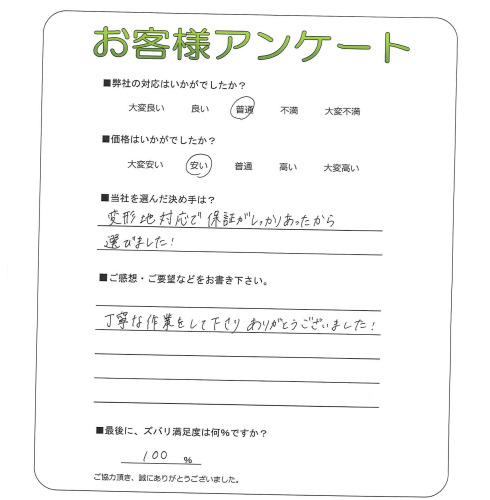 お客様アンケート
■弊社の対応はいかがでしたか？
大変良い 良い 普通 不満 大変不満
■価格はいかがでしたか？
大変安い 安い 普通 高い 大変高い
■当社を選んだ決め手は？
変形地対応で保証がしっかりあったから
選びました！
■ご感想・ご要望などをお書き下さい。
丁寧な作業をして下さり ありがとうございました！
■最後に、ズバリ満足度は何％ですか？
100 ％
ご協力頂き、誠にありがとうございました。